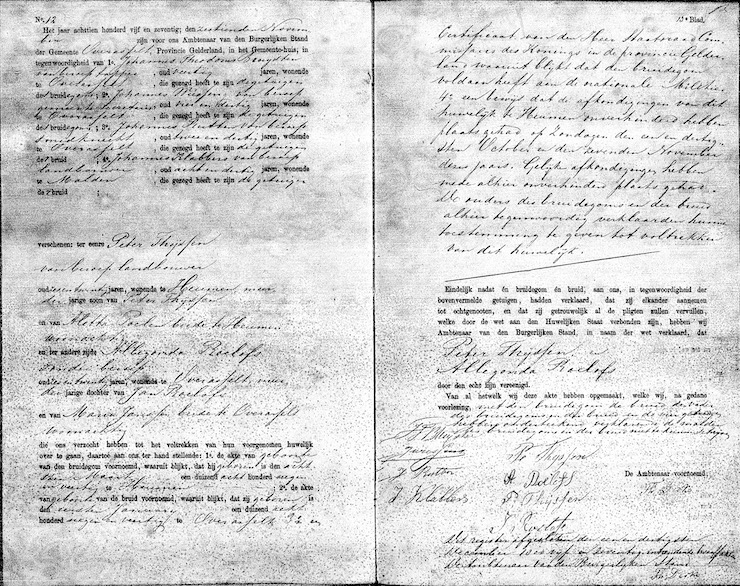 No. 12
Het jaar achttien honderd vijf en zeventig, den zestienden Novem
ber zijn voor ons Ambtenaar van den Burgerlijken Stand
der Gemeente Overasselt, Provincie Gelderland, in het Gemeente-huis, in
tegenwoordigheid van 1e. Johannes Theodorus
van beroep oud veertig jaren, wonende
te die gezegd heeft te zijn de getuigen
de bruidegom, 2e. Johannes van beroep
gemeente secretaris oud drie en dertig jaren, wonende
te Overasselt, die gezegd heeft te zijn de getuigen
de bruidegom, 3e. Johannes van beroep
oud twee en dertig jaren, wonende
te Overasselt, die gezegd heeft te zijn de getuigen
de bruid 4e. Johannes Klabbers van beroep
landbouwer, oud acht en dertig jaren, wonende
te Malden, die gezegd heeft te zijn de getuigen
de bruid ;
verschenen: ter eenre Peter Thijssen
van beroep landbouwer
oud zes en twintig jaren, wonende te Heumen, meer
der jarige zoon van Peter Thijssen
en van beide te Heumen
woonachtig
en ter andere zijde Allegonda Roelofs
zonder beroep
oud zes en twintig jaren, wonende te Overasselt, meer
der jarige dochter van Jan Roelofs
en van Maria Janssen beide te Overasselt
woonachtig
die ons verzocht hebben tot het voltrekken van hun voorgenomen huwelijk
over te gaan, daartoe aan ons ter hand stellende: 1e. de akte van geboorte
van den bruidegom voornoemd, waaruit blijkt, dat hij geboren is den acht
sten Maart een duizend acht honderd negen
en veertig te Heumen 2e. de akte
van geboorte van de bruid voornoemd, waaruit blijkt, dat zij geboren is
den eersten January een duizend acht
honderd negen en veertig te Overasselt 3e een
13e Blad.
Certificaat van den Heer Staatsraad Com
missaris des Konings in de provincie Gelder
land waaruit blijkt dat den bruidegom
voldaan heeft aan de nationale Militie
4e een bewijs dat de afkondigingen van dit
huwelijk te Heumen onverhinderd hebben
plaats gehad op Zondagen den een en dertig
sten October en den zevende November
dezes jaars. Gelijke afkondigingen hebben
mede alhier onverhinderd plaats gehad.
De ouders des bruidegoms en der bruid
alhier tegenwoordig verklaarden hunne
toestemming te geven tot voltrekken
van dit huwelijk.
Eindelijk nadat én bruidegom én bruid, aan ons, in tegenwoordigheid der
bovenvermelde getuigen, hadden verklaard, dat zij elkander aannemen
tot echtgenooten, en dat zij getrouwelijk al de pligten zullen vervullen,
welke door de wet aan den Huwelijken Staat verbonden zijn, hebben wij
Ambtenaar van den Burgerlijken Stand, in naam der wet verklaard, dat
Peter Thijssen en
Allegonda Roelofs
door den echt zijn vereenigd.
Van al hetwelk wij deze akte hebben opgemaakt, welke wij, na gedane
voorlezing, met den bruidegom de bruid de vader
des bruidegoms der bruid en de vier getuigen
hebben
Pe Thijssen
A Roelofs
P Thijssen
J Klabbers
J Roelofs
De Ambtenaar voornoemd,
Dit register afgesloten den een en dertigsten
December 1800 vijf en zeventig
De Ambtenaar van den Burgerlijken Stand